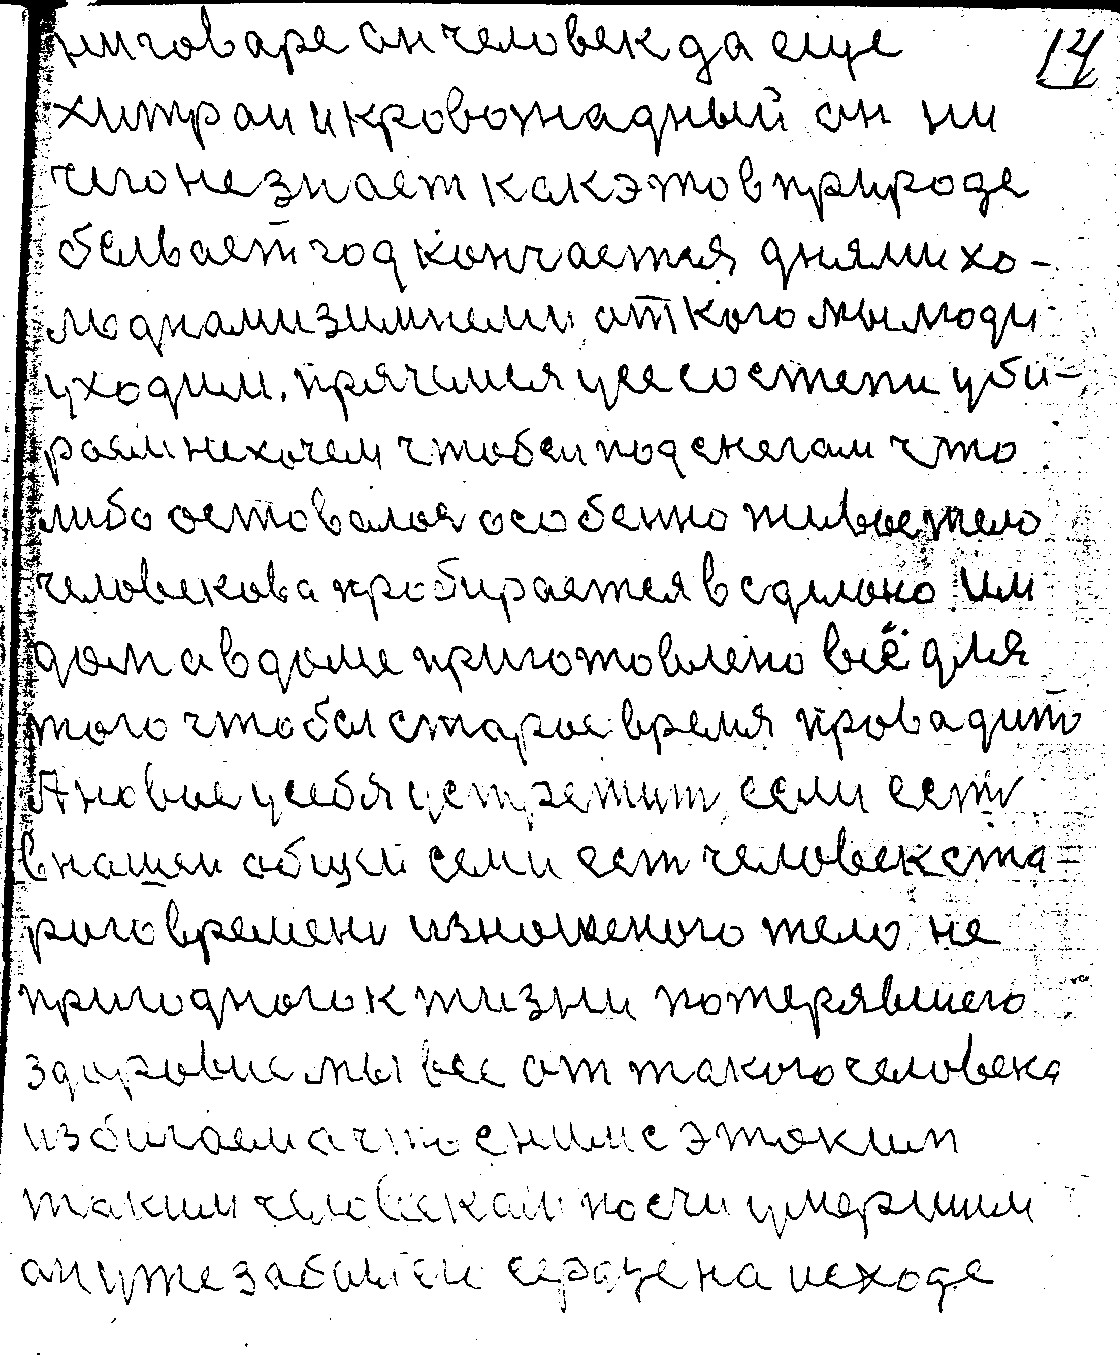 14
ниговаре он человек да еще
хитраи и кровожадный он ни
чего не знает как это в природе
бывает год кончается днями хо-
лоднами зимнеми от кого мы люди
уходим, прячемся усе со степи уби-
раем не хочем чтобы под снегам что
либо оставалося особенно живое тело
человекова пробирается в седмоно им
дом а в доме приготовлено всё для
того чтобы старое время провадит
А новые у себя устретит если есть
в нашеи общеи семи ест человек ста-
рого времени изношеного тело не
пригодного к жизни потерявшего
здоровие мы все от такого человека
избигаем а что с ним с этоким
таким человекам почти умершим
он уже забытеи сердце на исходе